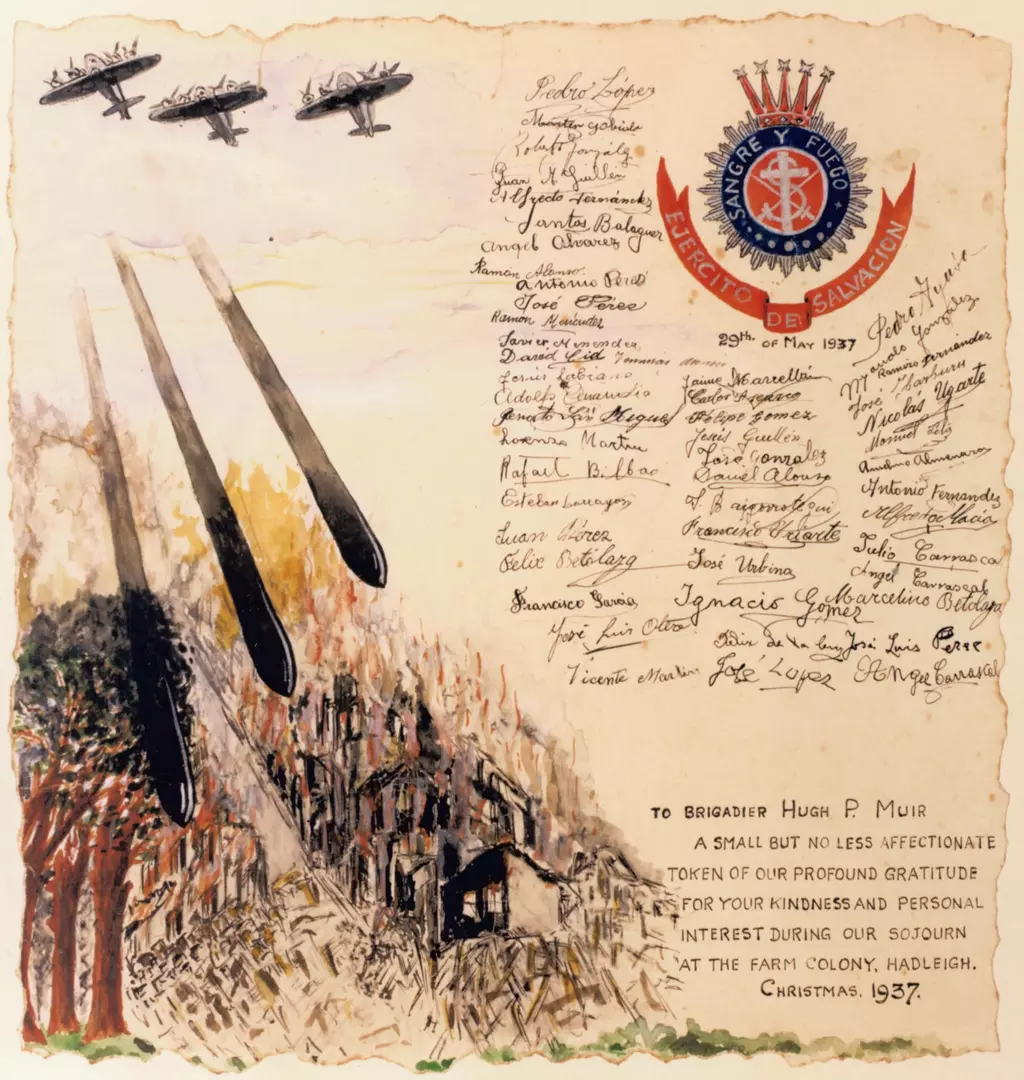 SANGRE Y FUEGO
EJERCITO DE SALVACION
29th. OF MAY 1937
Pedro López
Juan M Guillén
Alfredo Fernández
Santos Balaguer
Angel Alvarez
Ramon Alonso.
Antonio Perez
José Pérez
Ramon Menéndez
Javier Menendez
David Cid
Jesús Labiano
Adolfo
Renato San Miguel
Lorenzo Martin
Rafael Bilbao
Esteban Larrayoz
Juan Pérez
Felix Betolaza
Francisco García
José Luis Otero
Vicente Martin
Jaime Marcellán
Carlos
Felipe Gomez
Jesús Guillén
José Gonzalez
Daniel Alonso
Francisco Iriarte
José Urbina
Ignacio Gómez
José Luis Perez
José Lopez
Angel Carrascal
Pedro
Manolo González
Ramiro Fernández
José
Nicolás Ugarte
Manuel
Antonio Fernandez
Alfredo Macia
Julio Carrascal
Angel Carrascal
Marcelino Betolaza
TO BRIGADIER HUGH P. MUIR
A SMALL BUT NO LESS AFFECTIONATE
TOKEN OF OUR PROFOUND GRATITUDE
FOR YOUR KINDNESS AND PERSONAL
INTEREST DURING OUR SOJOURN
AT THE FARM COLONY, HADLEIGH.
CHRISTMAS, 1937.